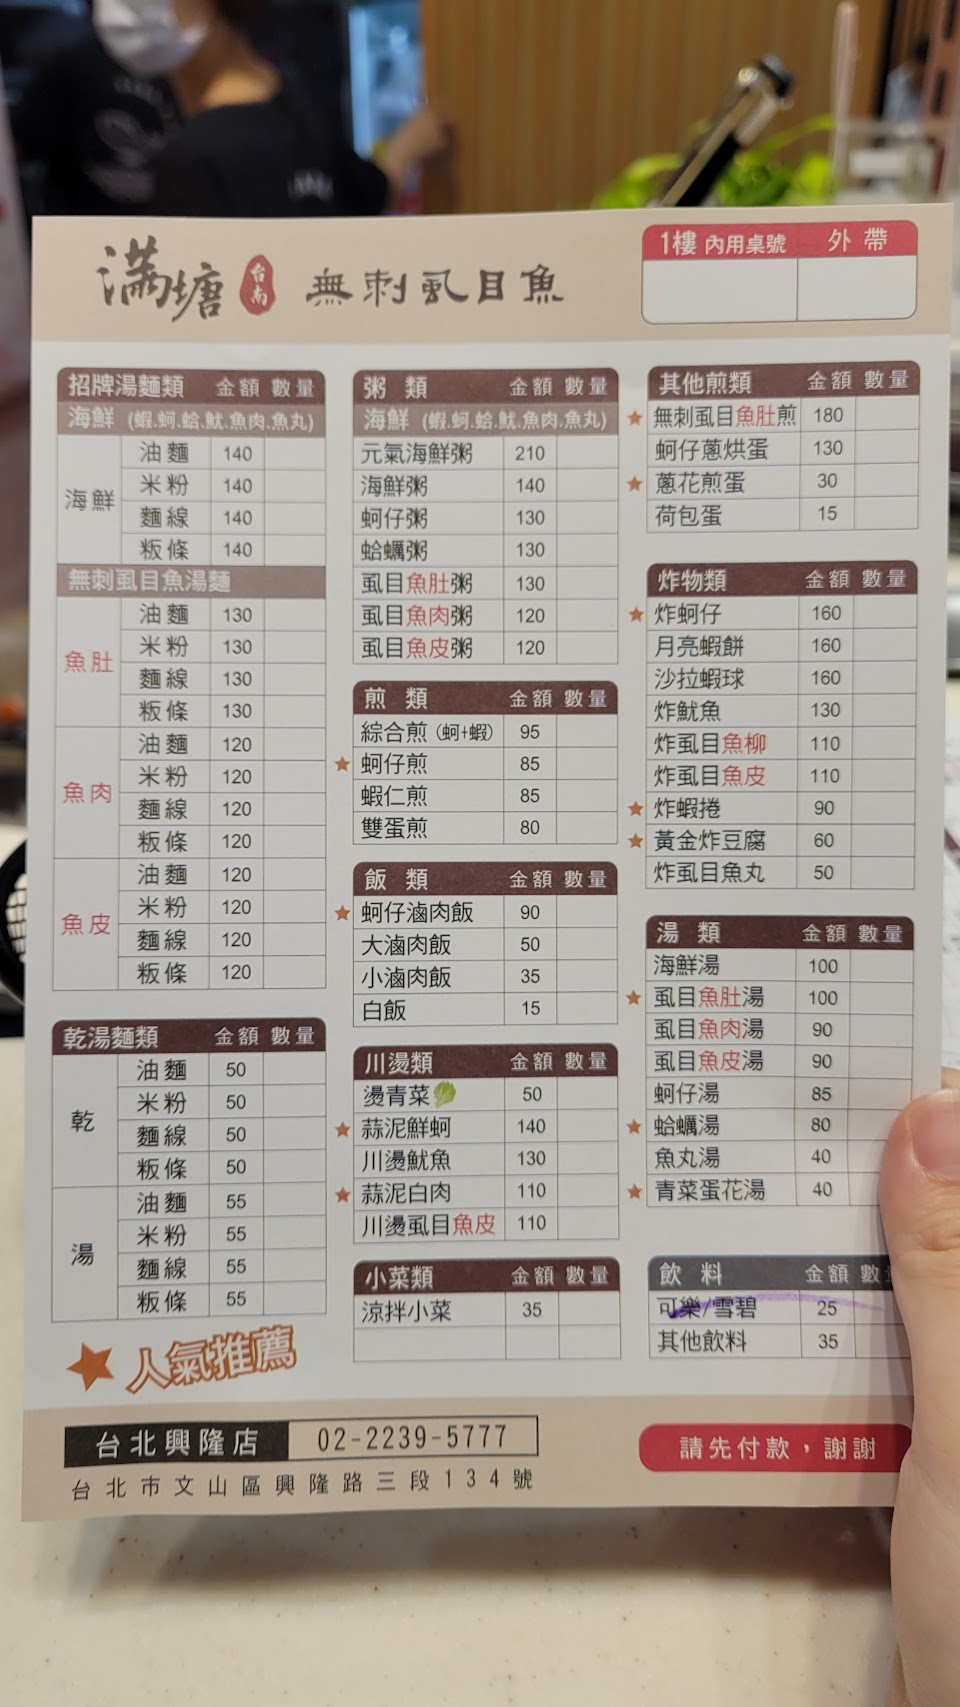 满塘 台南 無刺虱目魚
1樓 內用桌號 外帶
招牌湯麵類 金額 數量
海鮮 (蝦.蚵.蛤.魷.魚肉.魚丸)
海鮮
油麵 140
米粉 140
麵線 140
粄條 140
無刺虱目魚湯麵
魚肚
油麵 130
米粉 130
麵線 130
粄條 130
魚肉
油麵 120
米粉 120
麵線 120
粄條 120
魚皮
油麵 120
米粉 120
麵線 120
粄條 120
乾湯麵類 金額 數量
乾
油麵 50
米粉 50
麵線 50
粄條 50
湯
油麵 55
米粉 55
麵線 55
粄條 55
人氣推薦
粥類 金額 數量
海鮮 (蝦.蚵.蛤.魷.魚肉.魚丸)
元氣海鮮粥 210
海鮮粥 140
蚵仔粥 130
蛤蠣粥 130
虱目魚肚粥 130
虱目魚肉粥 120
虱目魚皮粥 120
煎類 金額 數量
綜合煎(蚵+蝦) 95
蚵仔煎 85
蝦仁煎 85
雙蛋煎 80
飯類 金額 數量
蚵仔滷肉飯 90
大滷肉飯 50
小滷肉飯 35
白飯 15
川燙類 金額 數量
燙青菜 50
蒜泥鮮蚵 140
川燙魷魚 130
蒜泥白肉 110
川燙虱目魚皮 110
小菜類 金額 數量
涼拌小菜 35
其他煎類 金額 數量
無刺虱目魚肚煎 180
蚵仔蔥烘蛋 130
蔥花煎蛋 30
荷包蛋 15
炸物類 金額 數量
炸蚵仔 160
月亮蝦餅 160
沙拉蝦球 160
炸魷魚 130
炸虱目魚柳 110
炸虱目魚皮 110
炸蝦捲 90
黃金炸豆腐 60
炸虱目魚丸 50
湯類 金額 數量
海鮮湯 100
虱目魚肚湯 100
虱目魚肉湯 90
虱目魚皮湯 90
蚵仔湯 85
蛤蠣湯 80
魚丸湯 40
青菜蛋花湯 40
飲料 金額 數
可樂/雪碧 25
其他飲料 35
台北興隆店 02-2239-5777
台北市文山區興隆路三段134號
請先付款，謝謝